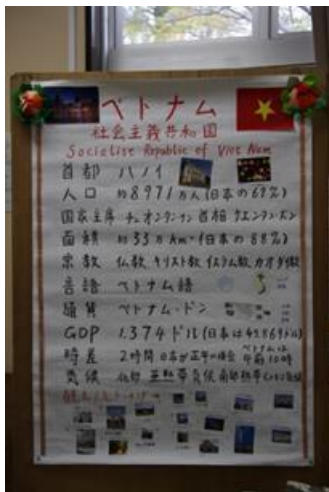 ベトナム
社会主義共和国
Socialist Republic of Viet Nam
首都 ハノイ
人口 約8971万人(日本の69%)
国家主席 チュオンタンサン 首相 グエンタンズン
面積 約33万km²(日本の88%)
宗教 仏教、キリスト教、イスラム教、カオダイ教
言語 ベトナム語
通貨 ベトナム・ドン
GDP 1,374ドル(日本は45,869ドル)
時差 2時間 日本が正午の場合 ベトナムは午前10時
気候 北部 亜熱帯気候 南部熱帯モンスーン気候